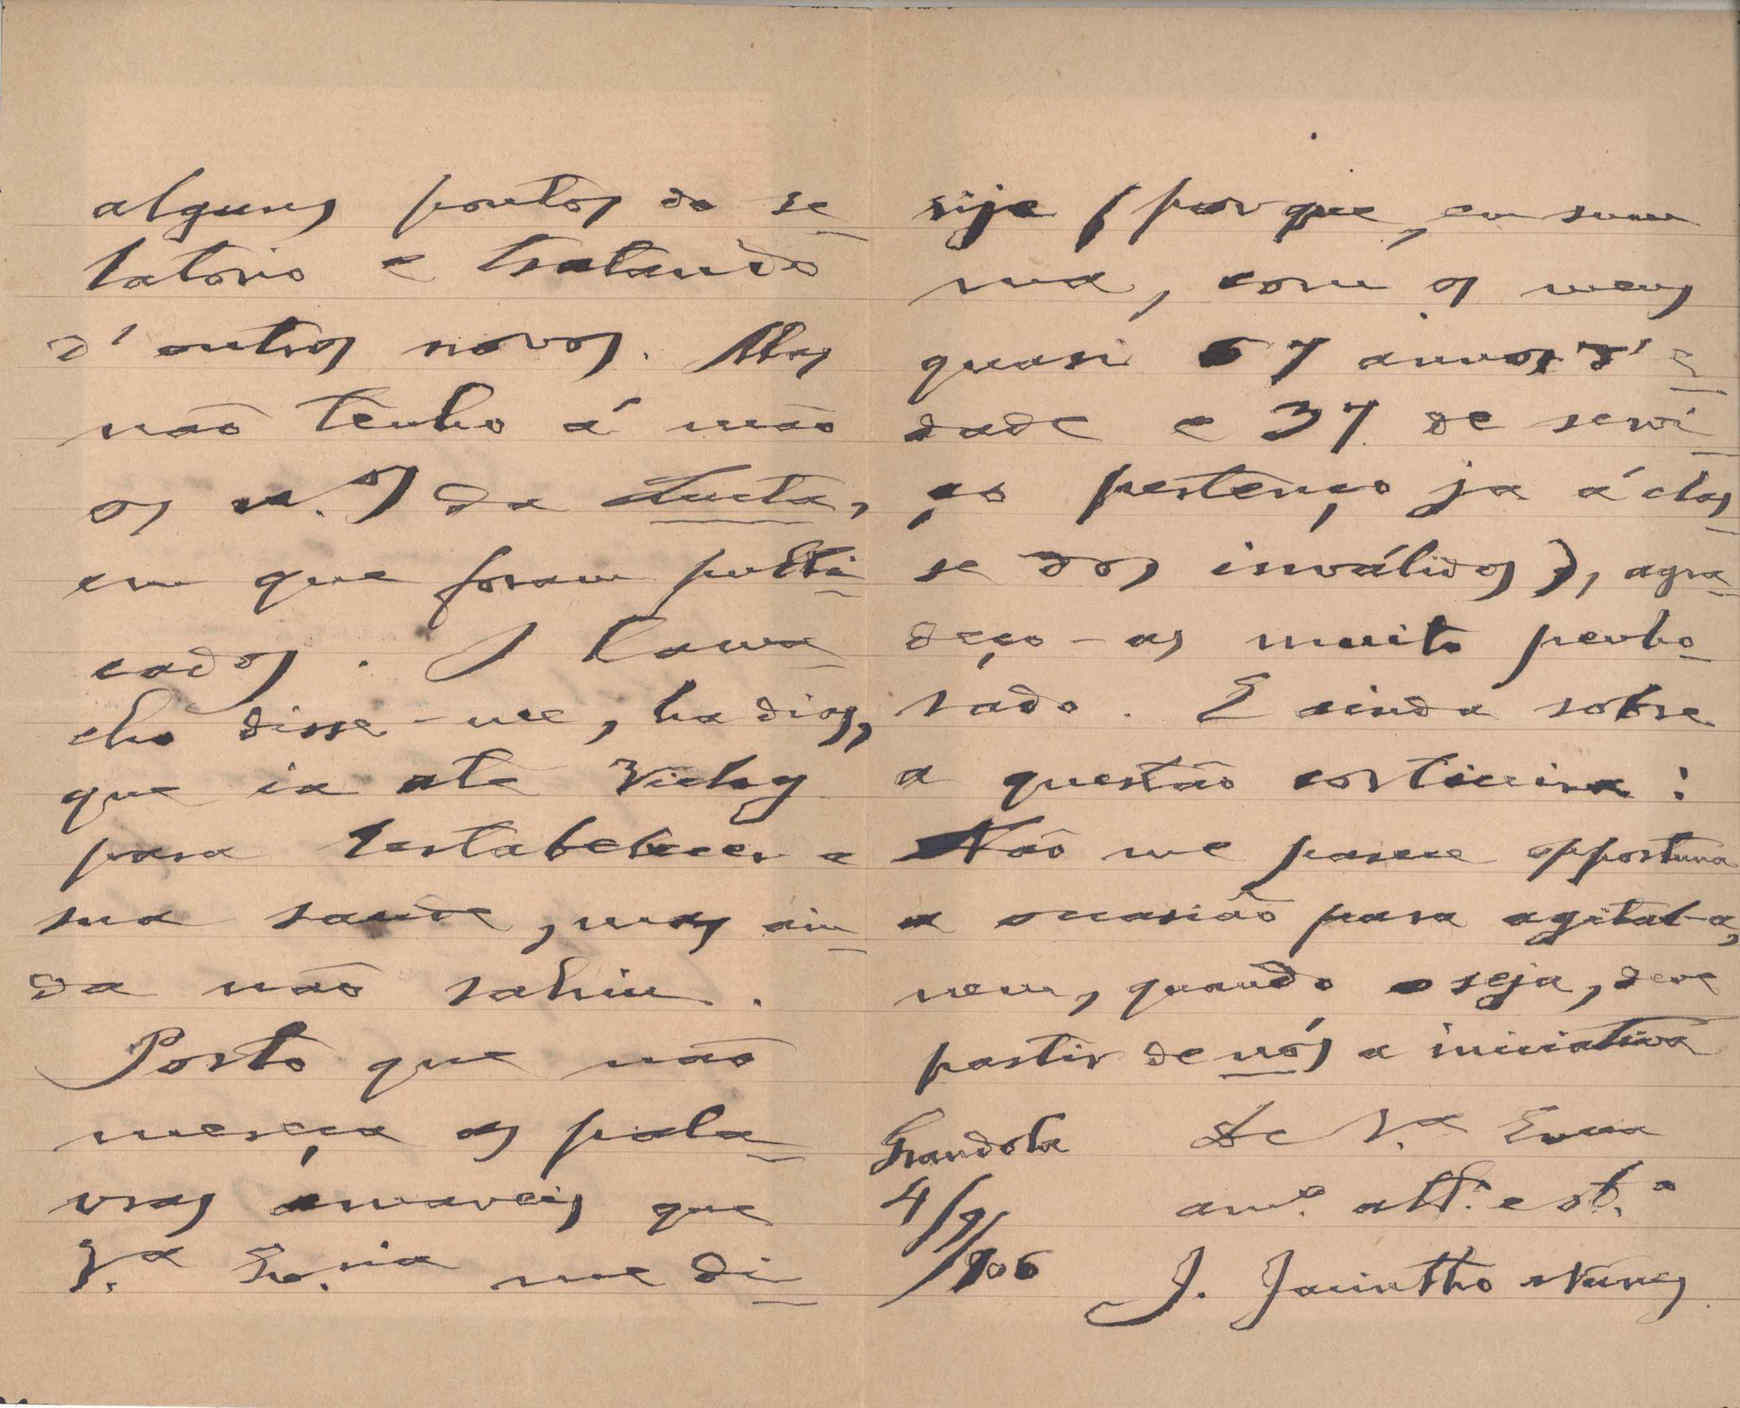 alguns pontos do re-
latorio e tratando
d'outros novos. Mas
não tenho á mão
os n.os da Lucta,
em que foram publi-
cados. O Cama-
cho disse-me, ha dias,
que ia ate Vichy
para restabelecer a
sua saude, mas ain-
da não sahiu.
Posto que não
mereça as pala-
vras amaveis que
V.a Ex.cia me di-
rije (porque, em sum
ma, com os meus
quasi 67 annos d'e-
dade e 37 de servi-
ço pertenço ja á clas-
se dos inválidos), agra-
deço-as muito penho-
rado. E ainda sobre
a questão corticeira:
Não me parece opportuna
a occasião para agital-a,
nem, quando o seja, deve
partir de nós a iniciativa
De V.a Exma
am.o att.o e ob.o
J. Jacintho Nunes
Grandola
4/9/
906